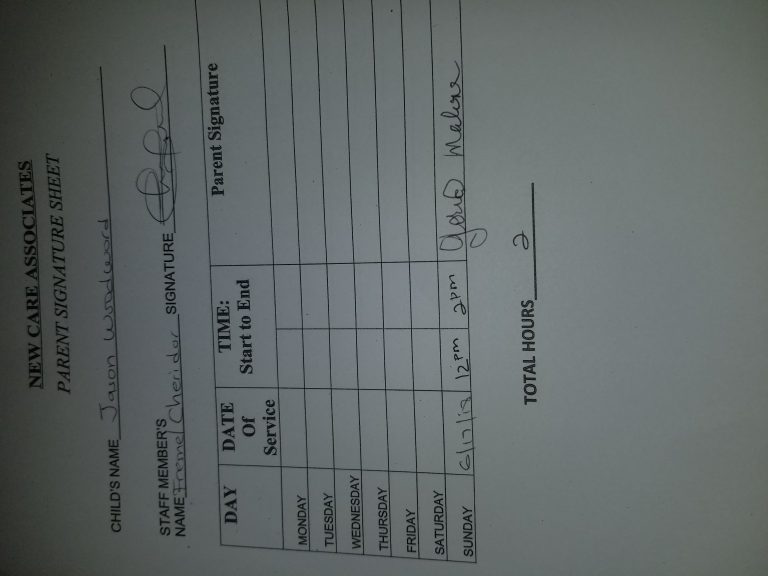 NEW CARE ASSOCIATES
PARENT SIGNATURE SHEET
CHILD'S NAME Jason Woodword
STAFF MEMBER'S
NAME Fremel Cheridor SIGNATURE
DAY DATE Of Service TIME: Start to End Parent Signature
MONDAY
TUESDAY
WEDNESDAY
THURSDAY
FRIDAY
SATURDAY
SUNDAY 6/17/18 12pm 2pm Malone
TOTAL HOURS 2